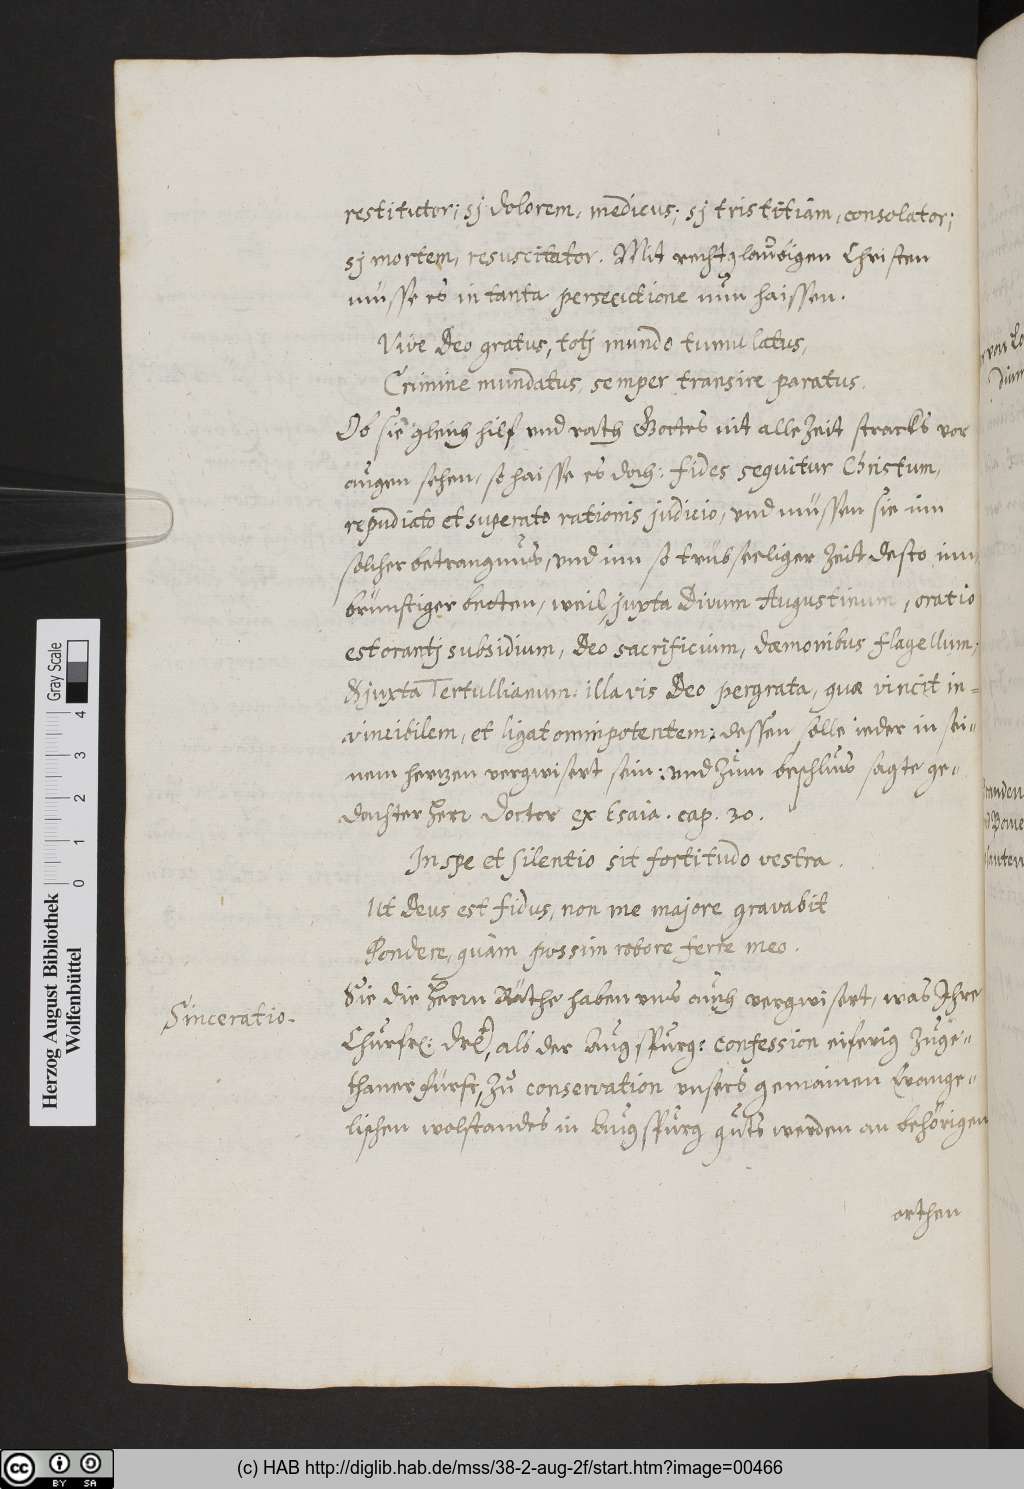 restitutor; sj dolorem, medicus; sj tristitiam, consolator;
sj mortem, resuscitator. Mit rechtglaubigen Christen
müsse es in tanta persecutione nun haissen.
Vive Deo gratus, totj mundo tumulatus,
Crimine mundatus, semper transire paratus.
Ob sie gleich hilf und rath Gottes nit alle Zeit stracks vor
augen sehen, so haisse es doch: fides sequitur Christum,
repudiato et superato rationis judicio, und müssen sie inn
solcher betrangnus, und inn so trübseeliger Zeit desto inn
brünstiger beeten, weil juxta Divum Augustinum, oratio
est orantj subsidium, Deo sacrificium, dæmonibus flagellum;
& juxta Tertullianum: illa vis Deo pergrata, quæ vincit in=
vincibilem, et ligat omnipotentem: dessen solle ieder in sei=
nem hertzen vergwisert sein: und zum beschluss sagte ge=
dachter Herr Doctor ex Esaia. cap. 30.
In spe et silentio sit fortitudo vestra.
Ut Deus est fidus, non me majore gravabit
Pondere, quàm possim robore ferre meo.
Sinceratio.
Sie die Herrn Räthe haben uns auch vergwisert, was Ihre
Churfr: Drl, als der Augspurg: Confession eiferig zuge=
thaner fürst, zu conservation unsers gemainen Evange=
lischen wolstandes in Augspurg guts werden an behörigen
orthen
Herzog August Bibliothek
Wolfenbüttel
Gray Scale
0 1 2 3 4
cc BY SA
(c) HAB http://diglib.hab.de/mss/38-2-aug-2f/start.htm?image=00466